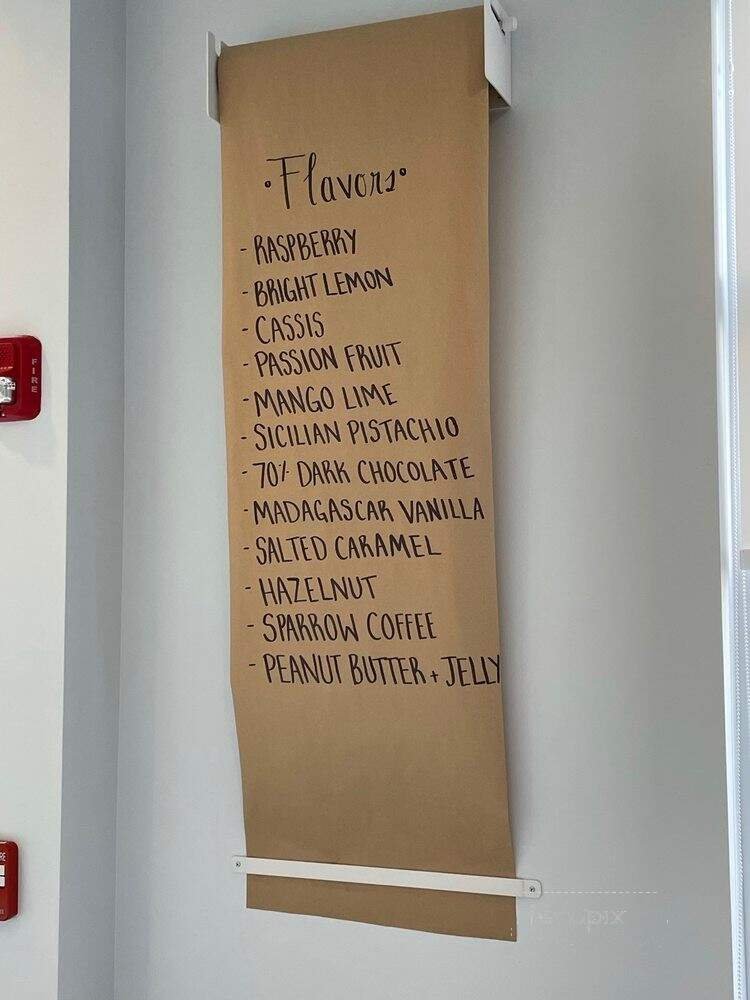 •Flavors•
- RASPBERRY
- BRIGHT LEMON
- CASSIS
- PASSION FRUIT
- MANGO LIME
- SICILIAN PISTACHIO
- 70% DARK CHOCOLATE
- MADAGASCAR VANILLA
- SALTED CARAMEL
- HAZELNUT
- SPARROW COFFEE
- PEANUT BUTTER + JELLY
FIRE